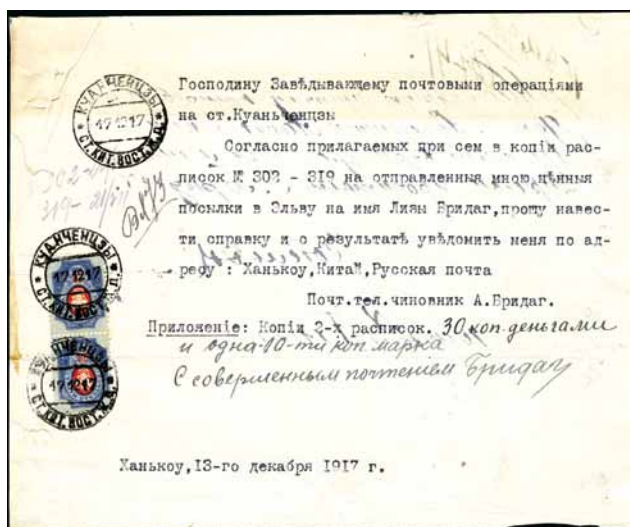 КУАНЧЕНЦЗЫ
17 12 17
СТ. КИТ. ВОСТ. Ж.Д.
Господину Завѣдывающему почтовыми операціями
на ст.Куаньченцзы
Согласно прилагаемых при сем в копіи рас-
писок № 302 - 319 на отправленныя мною цѣнныя
посылки в Эльву на имя Лизы Бридаг,прошу навес-
ти справку и о результатѣ увѣдомить меня по ад-
ресу : Ханькоу,Китай,Русская почта
Почт.тел.чиновник А.Бридаг.
Приложеніе: Копіи 2-х расписок. 30 коп деньгами
и одна 10-ти коп. марка
С совершенным почтением Бридаг
КУАНЧЕНЦЗЫ
17 12 17
СТ. КИТ. ВОСТ. Ж.Д.
КУАНЧЕНЦЗЫ
17 12 17
СТ. КИТ. ВОСТ. Ж.Д.
Ханькоу,13-го декабря 1917 г.